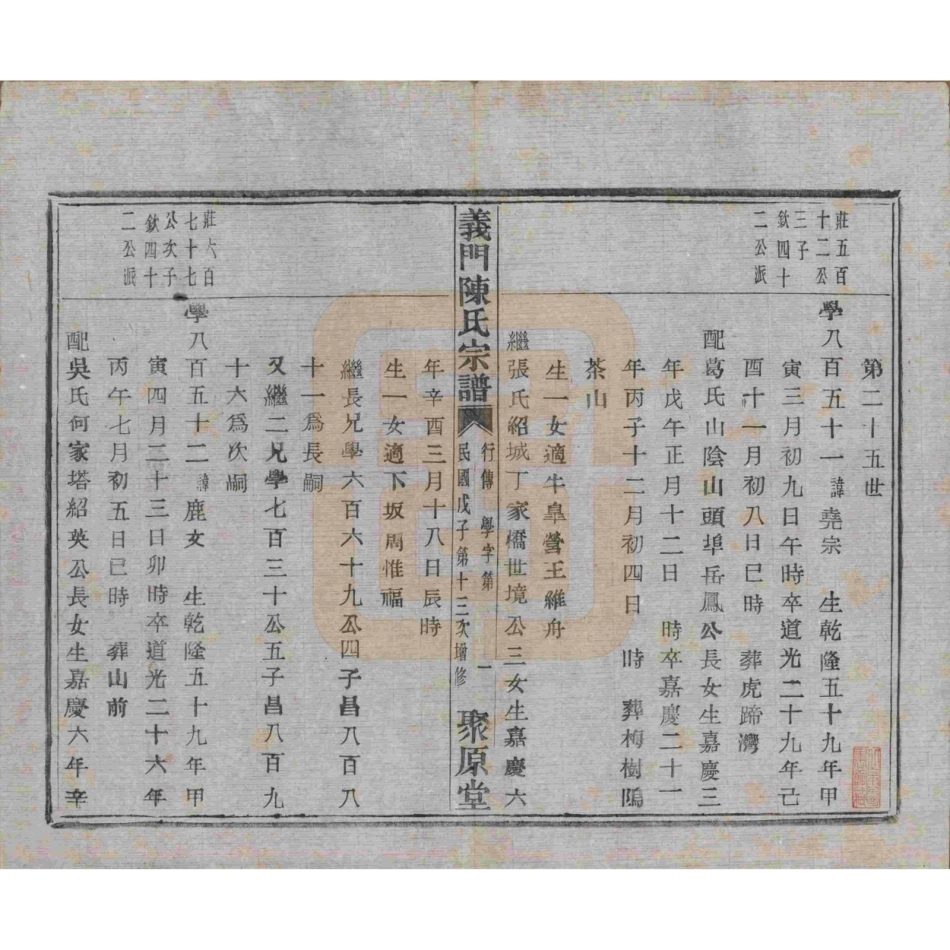 第二十五世
莊五百
十二公
三子
欽四十
二公派
學八百五十一諱堯宗 生乾隆五十九年甲
寅三月初九日午時卒道光二十九年己
酉十一月初八日巳時 葬虎蹄灣
配葛氏山陰山頭埠岳鳳公長女生嘉慶三
年戊午正月十二日 時卒嘉慶二十一
年丙子十二月初四日 時 葬梅樹隝
茶山
生一女適牛皐營王維舟
繼張氏紹城丁家橋世境公三女生嘉慶六
義門陳氏宗譜
行傳 學字第 一
民國戊子第十三次增修
聚原堂
年辛酉三月十八日辰時
生一女適下坂周惟福
繼長兄學六百六十九公四子昌八百八
十一爲長嗣
又繼二兄學七百三十公五子昌八百九
十六爲次嗣
莊六百
七十七
公次子
欽四十
二公派
學八百五十二諱鹿友 生乾隆五十九年甲
寅四月二十三日卯時卒道光二十六年
丙午七月初五日巳時 葬山前
配吳氏何家塔紹英公長女生嘉慶六年辛